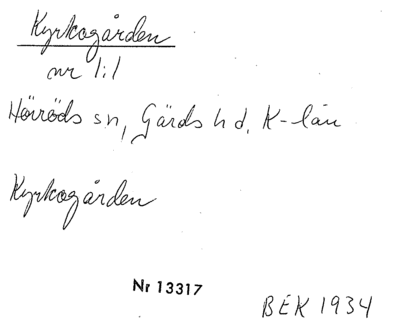 Kyrkogården
nr 1:1
Hörröds sn, Gärds hd, K-län
Kyrkogården
Nr 13317
BEK 1934